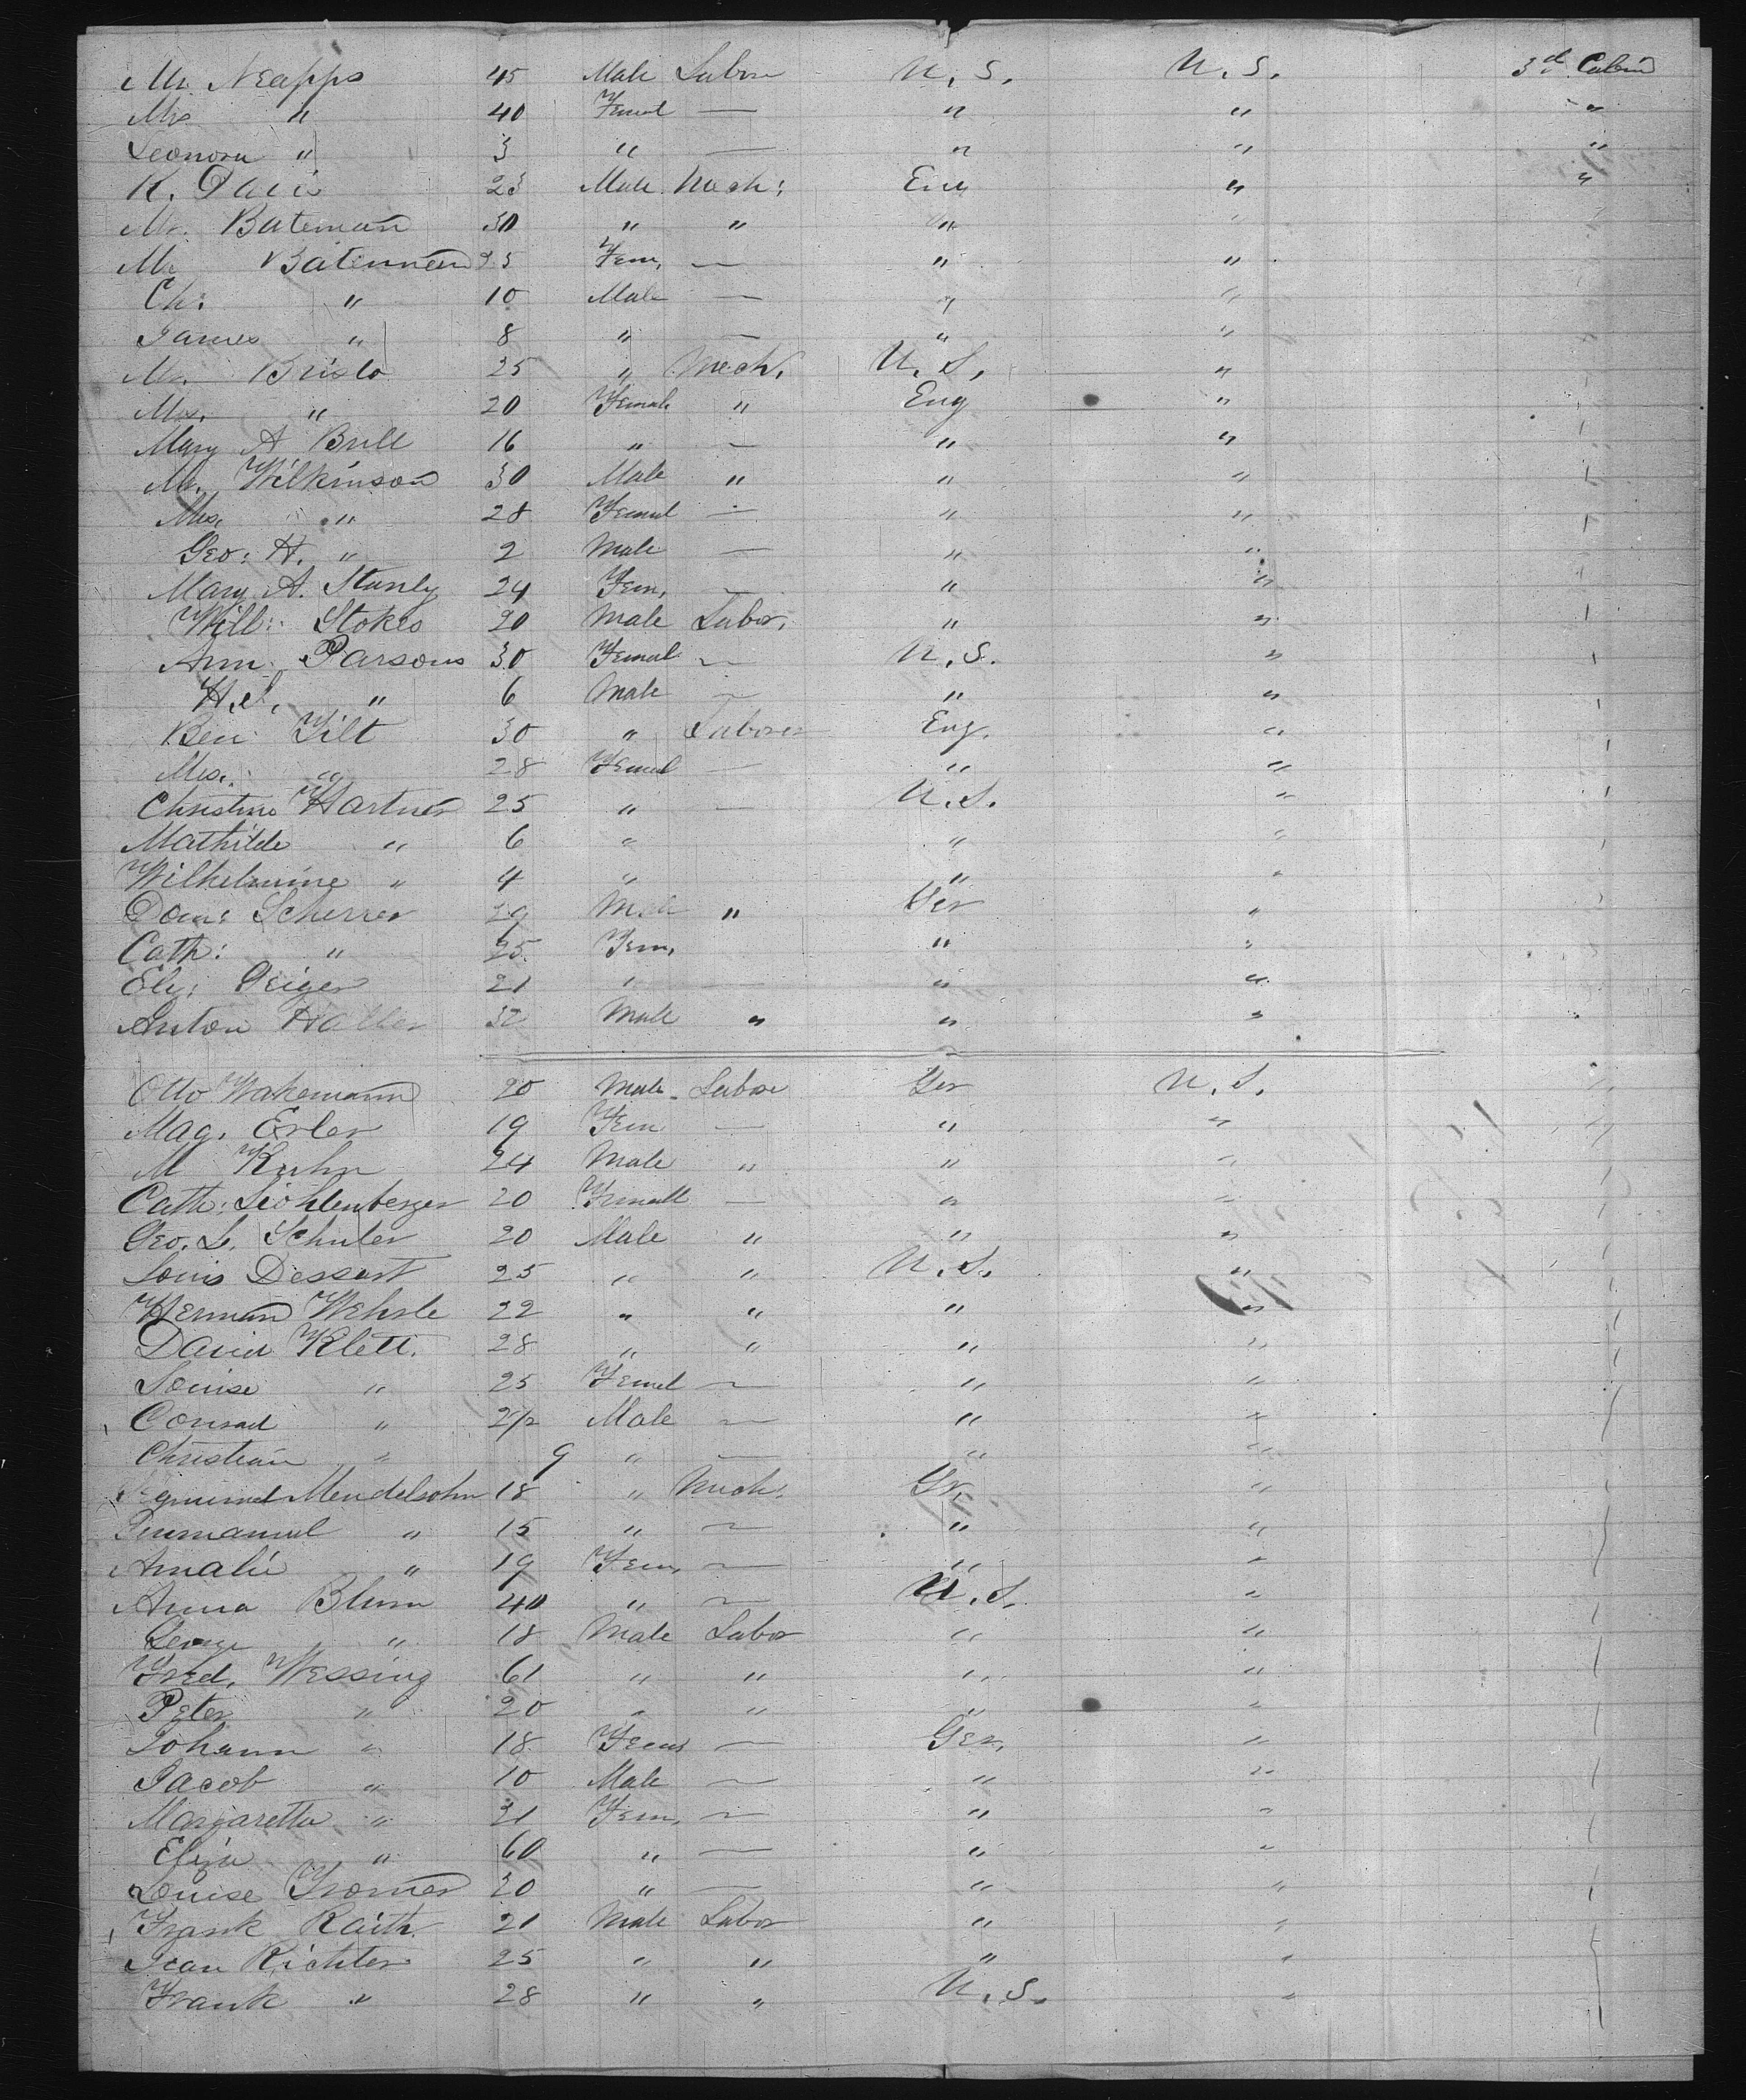 Mr. Neapps 45 Male Labor U. S. U. S. 3d Cabin
Mrs " 40 Femal — " " "
Leonora " 3 " — " " "
R. Davis 23 Male Mech: Eng " "
Mr. Bateman 30 " " " "
Mrs Bateman 25 Fem, — " "
Ch: " 10 Male — " "
James " 8 " — " "
Mr. Bristo 25 " Mech, U. S, "
Mrs, " 20 Female " Eng "
Mary A Brill 16 " — " "
Mr. Wilkinson 30 Male " " "
Mrs, " 28 Femal — " "
Geo: H. " 2 Male — " "
Mary A. Stanly 24 Fem, — " "
Will: Stokes 20 Male Labor, " "
Ann Parsons 30 Femal — U. S. "
H. S, " 6 Male — " "
Ben: Tilt 30 " Laborer Eng. "
Mrs. " 28 Femal — " "
Christine Hartner 25 " — U. S. "
Mathilde " 6 " " "
Wilhelmine " 4 " " "
Dom: Scherrer 29 Male " Ger "
Cath: " 25 Fem, " "
Eliz: Geiger 21 " — " "
Anton Haller 32 Male " " "
Otto Wakemann 20 Male Labor Ger U. S.
Mag. Erler 19 Fem — " "
M Kuhn 24 Male " " "
Cath: Liohlenberger 20 Femall — " "
Geo. L. Schuler 20 Male " " "
Louis Dessart 25 " " U. S. "
Herman Wehrle 22 " " " "
David Klett. 28 " " " "
Louise " 25 Femel — " "
Conrad " 2½ Male — " "
Christian " 9 " — " "
Mendelsohn 18 " Mech. Gr. "
Emmanuel " 15 " — " "
Amalie " 19 Fem, — " "
Anna Blum 40 " — U. S. "
George " 18 Male Labor " "
Fred. Wessing 61 " " " "
Peter " 20 " " " "
Johann " 18 Fem — Ger, "
Jacob " 10 Male — " "
Margaretta " 21 Fem, — " "
Eliza " 60 " — " "
Louise Kromer 20 " — " "
Frank Raith. 21 Male Labor " "
Jean Richter 25 " " " "
Frank " 28 " " U. S. "